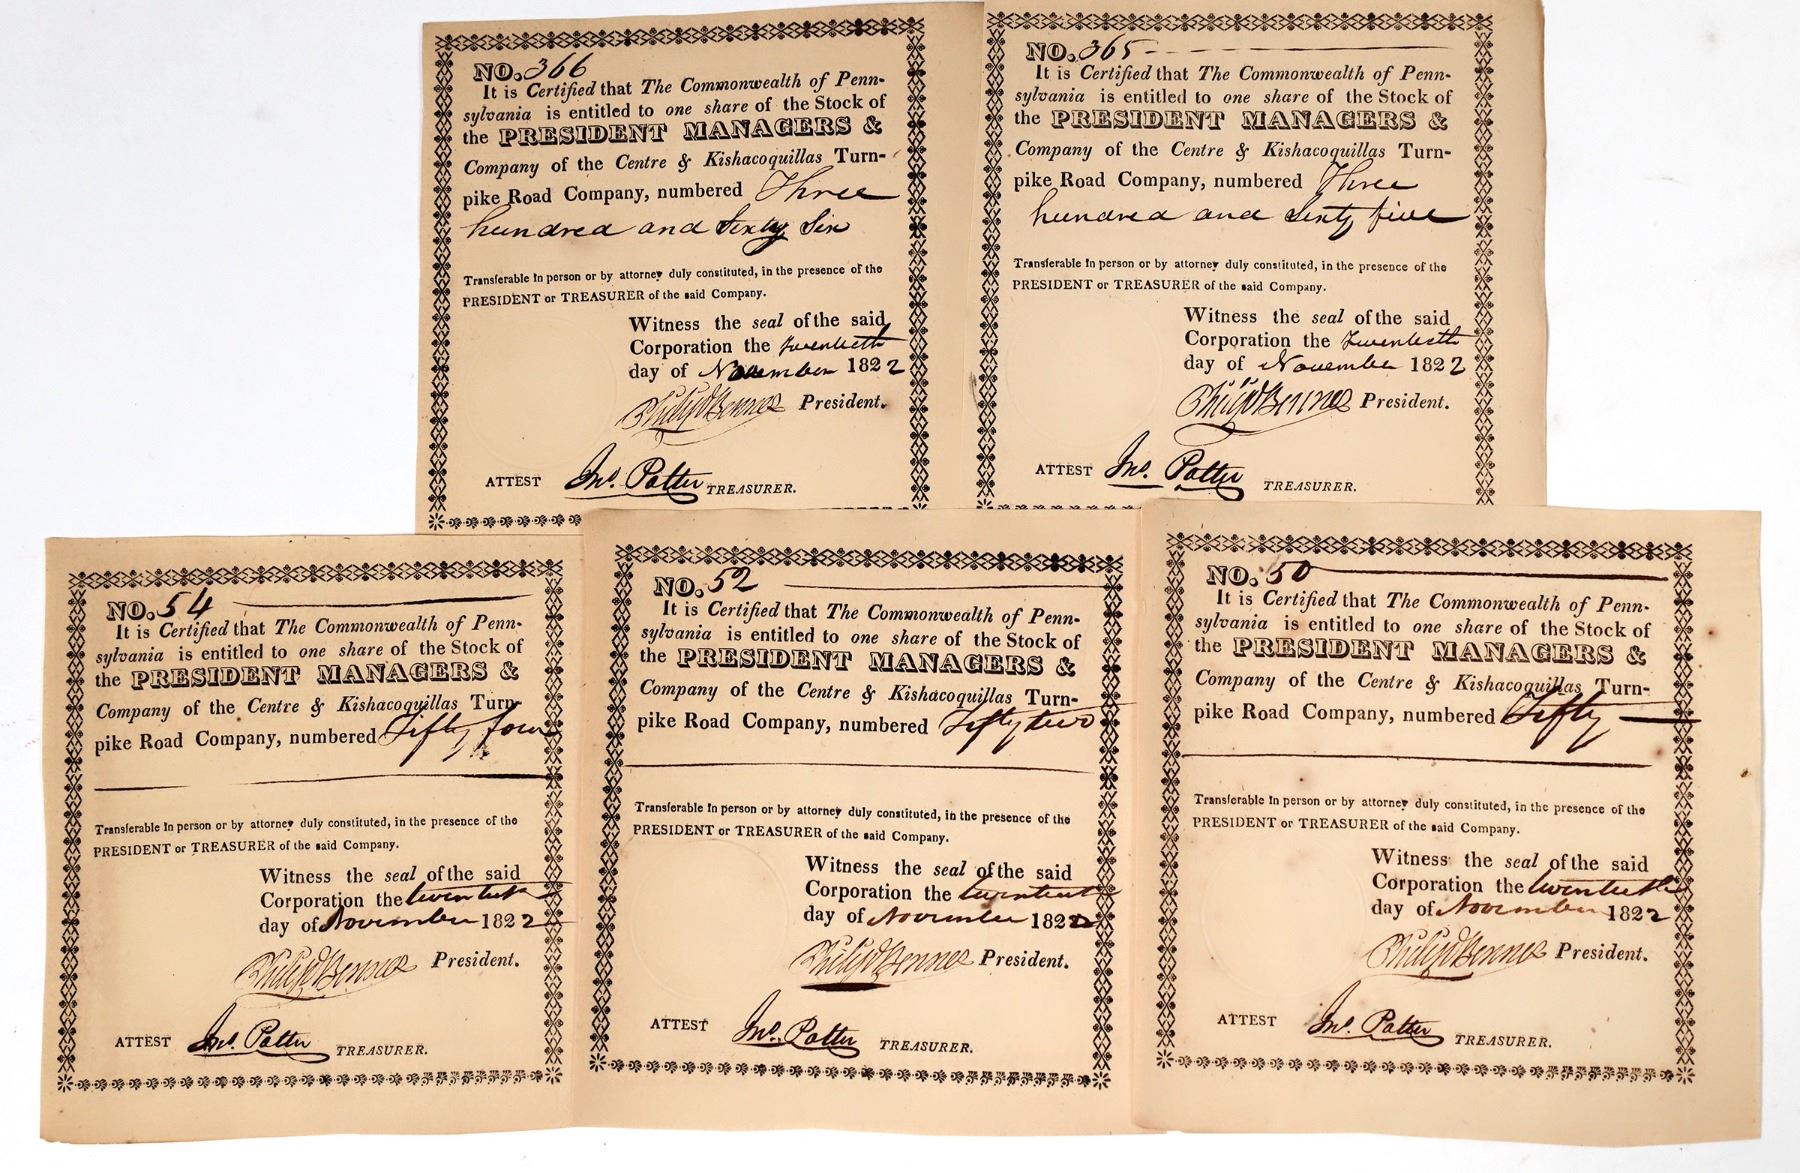 NO. 366
It is Certified that The Commonwealth of Penn-
sylvania is entitled to one share of the Stock of
the PRESIDENT MANAGERS &
Company of the Centre & Kishacoquillas Turn-
pike Road Company, numbered Three
hundred and Sixty Six
Transferable In person or by attorney duly constituted, in the presence of the
PRESIDENT or TREASURER of the said Company.
Witness the seal of the said
Corporation the twentieth
day of November 1822
Philip Benner President.
ATTEST Jno. Potter TREASURER.
NO. 365
It is Certified that The Commonwealth of Penn-
sylvania is entitled to one share of the Stock of
the PRESIDENT MANAGERS &
Company of the Centre & Kishacoquillas Turn-
pike Road Company, numbered Three
hundred and Sixty five
Transferable In person or by attorney duly constituted, in the presence of the
PRESIDENT or TREASURER of the said Company.
Witness the seal of the said
Corporation the twentieth
day of November 1822
Philip Benner President.
ATTEST Jno. Potter TREASURER.
NO. 54
It is Certified that The Commonwealth of Penn-
sylvania is entitled to one share of the Stock of
the PRESIDENT MANAGERS &
Company of the Centre & Kishacoquillas Turn-
pike Road Company, numbered Fifty four
Transferable In person or by attorney duly constituted, in the presence of the
PRESIDENT or TREASURER of the said Company.
Witness the seal of the said
Corporation the twentieth
day of November 1822
Philip Benner President.
ATTEST Jno. Potter TREASURER.
NO. 52
It is Certified that The Commonwealth of Penn-
sylvania is entitled to one share of the Stock of
the PRESIDENT MANAGERS &
Company of the Centre & Kishacoquillas Turn-
pike Road Company, numbered Fifty two
Transferable In person or by attorney duly constituted, in the presence of the
PRESIDENT or TREASURER of the said Company.
Witness the seal of the said
Corporation the twentieth
day of November 1822
Philip Benner President.
ATTEST Jno. Potter TREASURER.
NO. 50
It is Certified that The Commonwealth of Penn-
sylvania is entitled to one share of the Stock of
the PRESIDENT MANAGERS &
Company of the Centre & Kishacoquillas Turn-
pike Road Company, numbered Fifty
Transferable In person or by attorney duly constituted, in the presence of the
PRESIDENT or TREASURER of the said Company.
Witness the seal of the said
Corporation the twentieth
day of November 1822
Philip Benner President.
ATTEST Jno. Potter TREASURER.